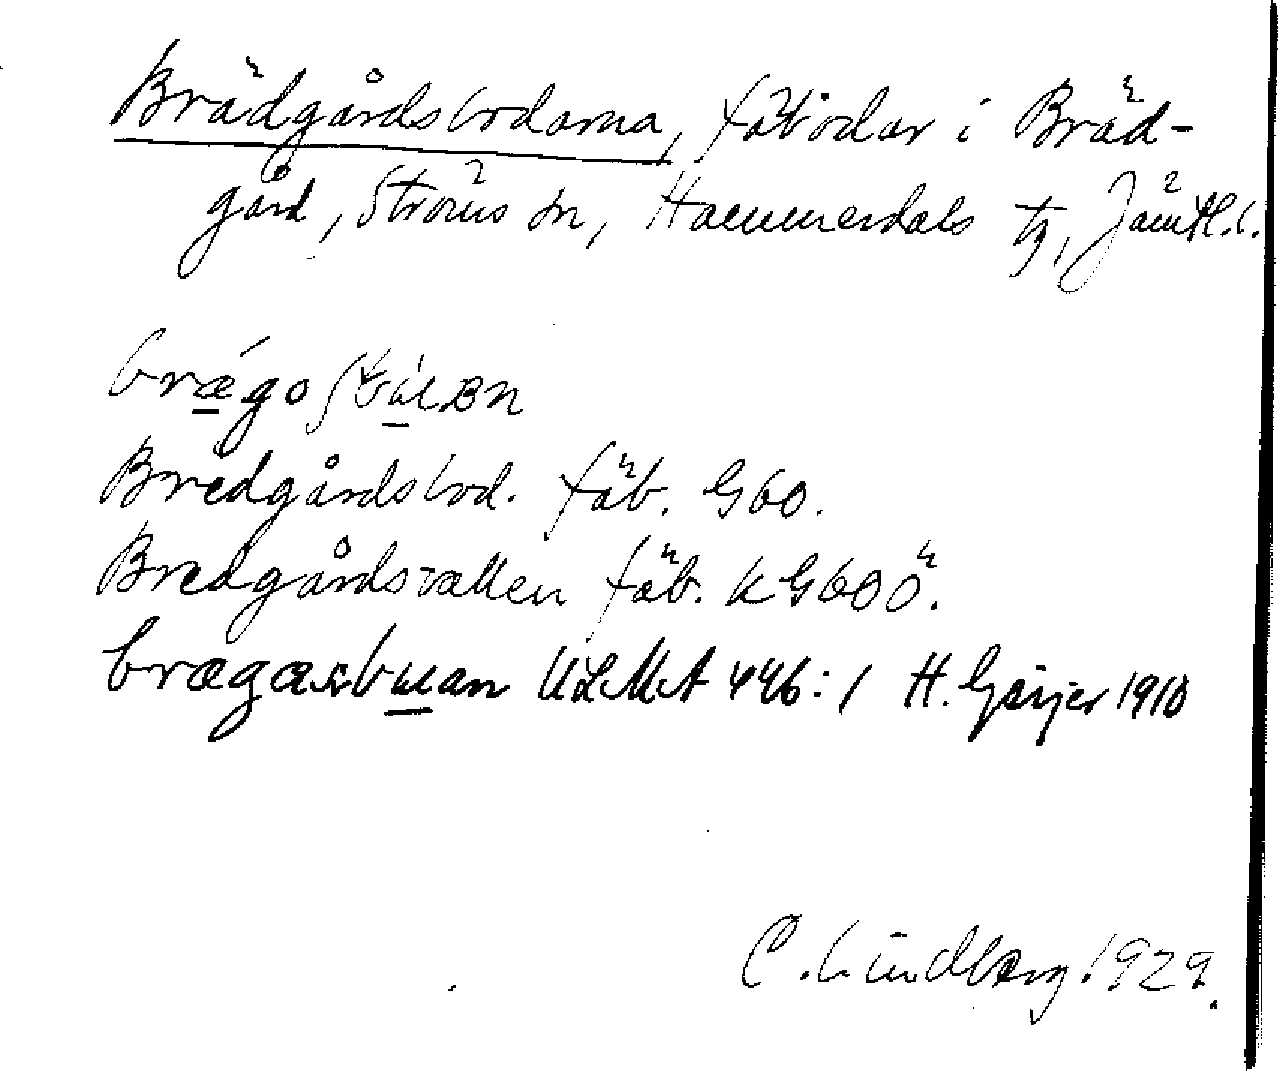 Brädgårdsbodarna, fäbodar i Bräd-
gård, Ströms sn, Hammerdals tg, Jämtl. l.
Bredgårdsbod. fäb. G60.
Bredgårdsvallen fäb. KG60Ö.
brægasbuan ULMA 446:1 H. Geijer 1910
C. Lindberg. 1929.